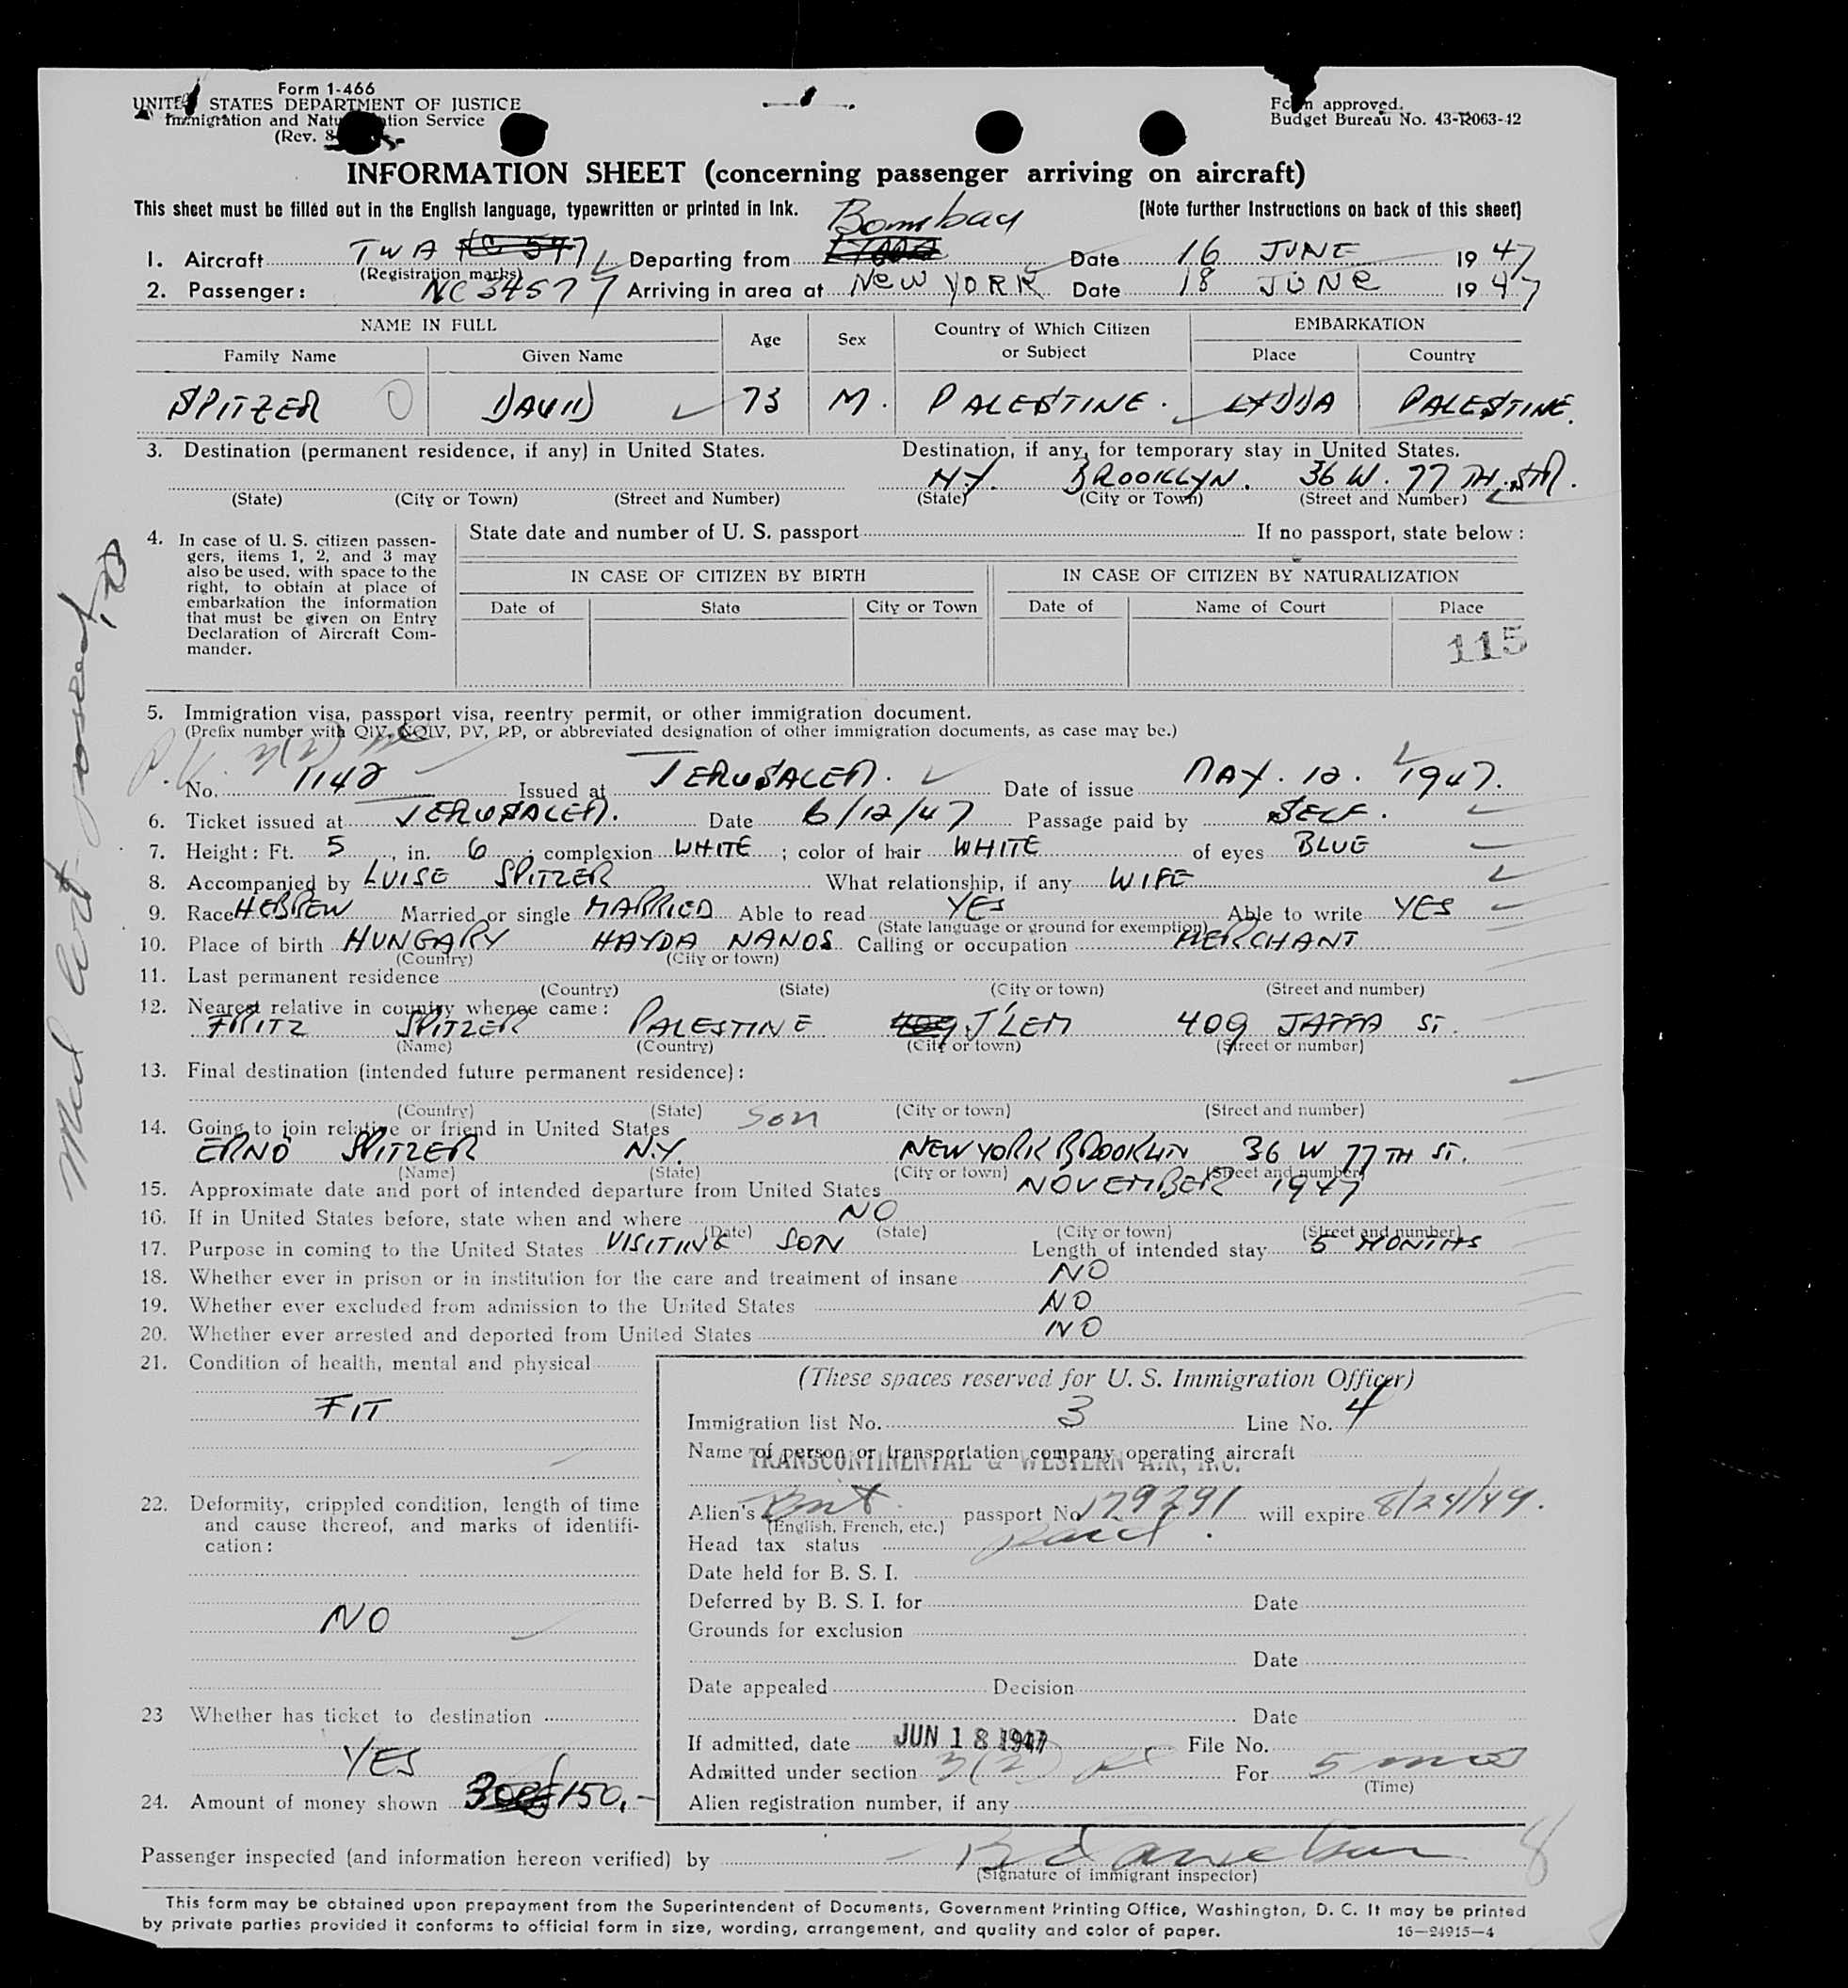 Form I-466
UNITED STATES DEPARTMENT OF JUSTICE
Immigration and Naturalization Service
(Rev. 8
Form approved.
Budget Bureau No. 43-R063-42
INFORMATION SHEET (concerning passenger arriving on aircraft)
This sheet must be filled out in the English language, typewritten or printed in ink. (Note further instructions on back of this sheet)
Bombay
1. Aircraft TWA Departing from Date 16 JUNE 1947
(Registration marks)
NC 34577
2. Passenger: Arriving in area at NEW YORK Date 18 JUNE 1947
NAME IN FULL Age Sex Country of Which Citizen or Subject EMBARKATION
Family Name Given Name Place Country
SPITZER DAVID 73 M. PALESTINE. LYDDA PALESTINE.
3. Destination (permanent residence, if any) in United States. Destination, if any, for temporary stay in United States.
N.Y. BROOKLYN. 36 W. 77 TH. STR.
(State) (City or Town) (Street and Number) (State) (City or Town) (Street and Number)
4. In case of U. S. citizen passen-
gers, items 1, 2, and 3 may
also be used, with space to the
right, to obtain at place of
embarkation the information
that must be given on Entry
Declaration of Aircraft Com-
mander.
State date and number of U. S. passport If no passport, state below:
IN CASE OF CITIZEN BY BIRTH IN CASE OF CITIZEN BY NATURALIZATION
Date of State City or Town Date of Name of Court Place
115
5. Immigration visa, passport visa, reentry permit, or other immigration document.
(Prefix number with QIV, NQIV, PV, RP, or abbreviated designation of other immigration documents, as case may be.)
3(2)
No. 1142 Issued at JERUSALEM. Date of issue MAY. 12. 1947.
6. Ticket issued at JERUSALEM. Date 6/12/47 Passage paid by SELF.
7. Height: Ft. 5, in. 6; complexion WHITE; color of hair WHITE of eyes BLUE
8. Accompanied by LUISE SPITZER What relationship, if any WIFE
9. Race HEBREW Married or single MARRIED Able to read YES Able to write YES
(State language or ground for exemption)
10. Place of birth HUNGARY HAYDA NANOS Calling or occupation MERCHANT
(Country) (City or town)
11. Last permanent residence
(Country) (State) (City or town) (Street and number)
12. Nearest relative in country whence came:
FRITZ SPITZER PALESTINE J'LEM 409 JAFFA ST.
(Name) (Country) (City or town) (Street or number)
13. Final destination (intended future permanent residence):
(Country) (State) (City or town) (Street and number)
14. Going to join relative or friend in United States Son
ERNO SPITZER N.Y. NEW YORK BROOKLIN 36 W 77 TH ST.
(Name) (State) (City or town) (Street and number)
15. Approximate date and port of intended departure from United States NOVEMBER 1947
16. If in United States before, state when and where NO
(Date) (State) (City or town) (Street and number)
17. Purpose in coming to the United States VISITING SON Length of intended stay 5 MONTHS
18. Whether ever in prison or in institution for the care and treatment of insane NO
19. Whether ever excluded from admission to the United States NO
20. Whether ever arrested and deported from United States NO
21. Condition of health, mental and physical
FIT
22. Deformity, crippled condition, length of time
and cause thereof, and marks of identifi-
cation:
NO
23 Whether has ticket to destination
YES
24. Amount of money shown £150,-
(These spaces reserved for U. S. Immigration Officer)
Immigration list No. 3 Line No. 4
Name of person or transportation company operating aircraft
TRANSCONTINENTAL & WESTERN AIR, INC.
Alien's Brit. passport No. 179291 will expire 8/24/49.
(English, French, etc.)
Head tax status paid.
Date held for B. S. I.
Deferred by B. S. I. for Date
Grounds for exclusion
Date
Date appealed Decision
Date
If admitted, date JUN 18 1947 File No.
Admitted under section 3(2) For 5 mos
(Time)
Alien registration number, if any
Passenger inspected (and information hereon verified) by
(Signature of immigrant inspector)
8
This form may be obtained upon prepayment from the Superintendent of Documents, Government Printing Office, Washington, D. C. It may be printed
by private parties provided it conforms to official form in size, wording, arrangement, and quality and color of paper. 16—24915—4
Med Cert